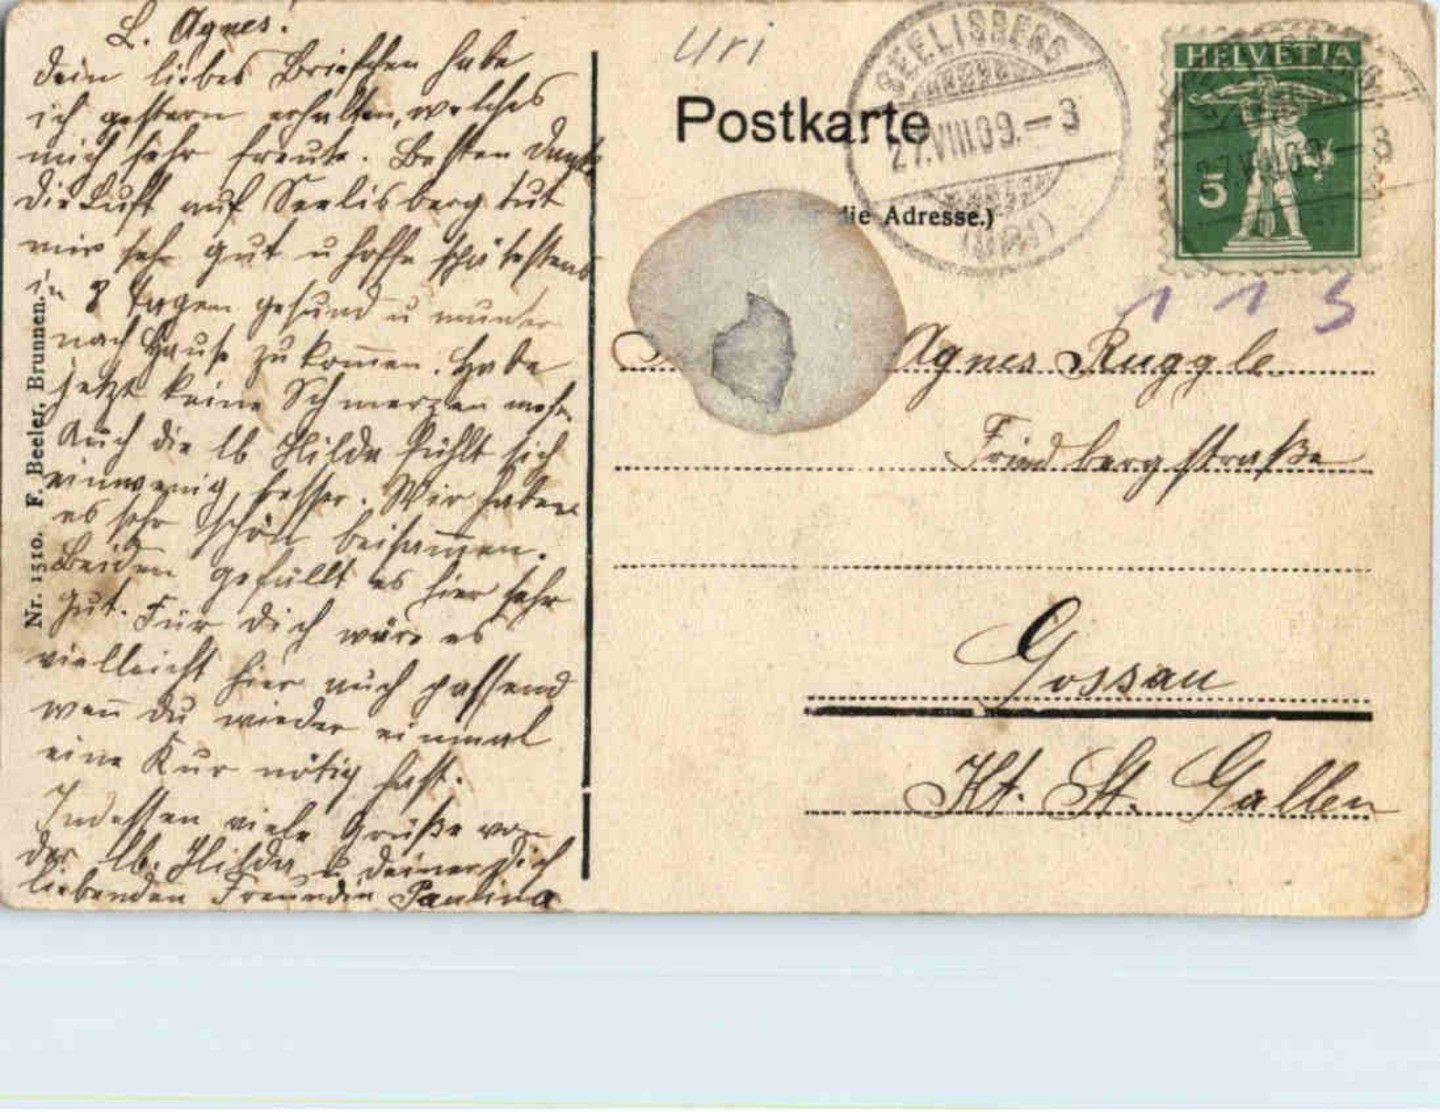 L. Agnes!
Dein liebes Briefchen habe
ich gestern erhalten, welches
mich sehr freute. Besten Dank
Die Luft auf Seelisberg tut
mir sehr gut u hoffe spätestens
in 8 Tagen gesund u munter
nach Hause zu kom̅en. Habe
jetzt keine Schmerzen mehr.
Auch die lb Hilda fühlt sich
einwenig besser. Wir haben
es sehr schön beisam̅en.
Beiden gefällt es hier sehr
gut. Für Dich wäre es
vielleicht hier auch passend
wen̅ du wieder einmal
eine Kur nötig hast.
Indessen viele Grüße von
der lb. Hilda u deiner Dich
liebenden Freundin Paulina
Nr. 1310. F. Beeler, Brunnen.
Uri
Postkarte
die Adresse.)
SEELISBERG
27.VIII.09.-3
(URI)
HELVETIA
5
27.VIII.09.-3
1 1 5
Agnes Ruggle
Friedbergstraße
Gossau
Kt. St. Gallen